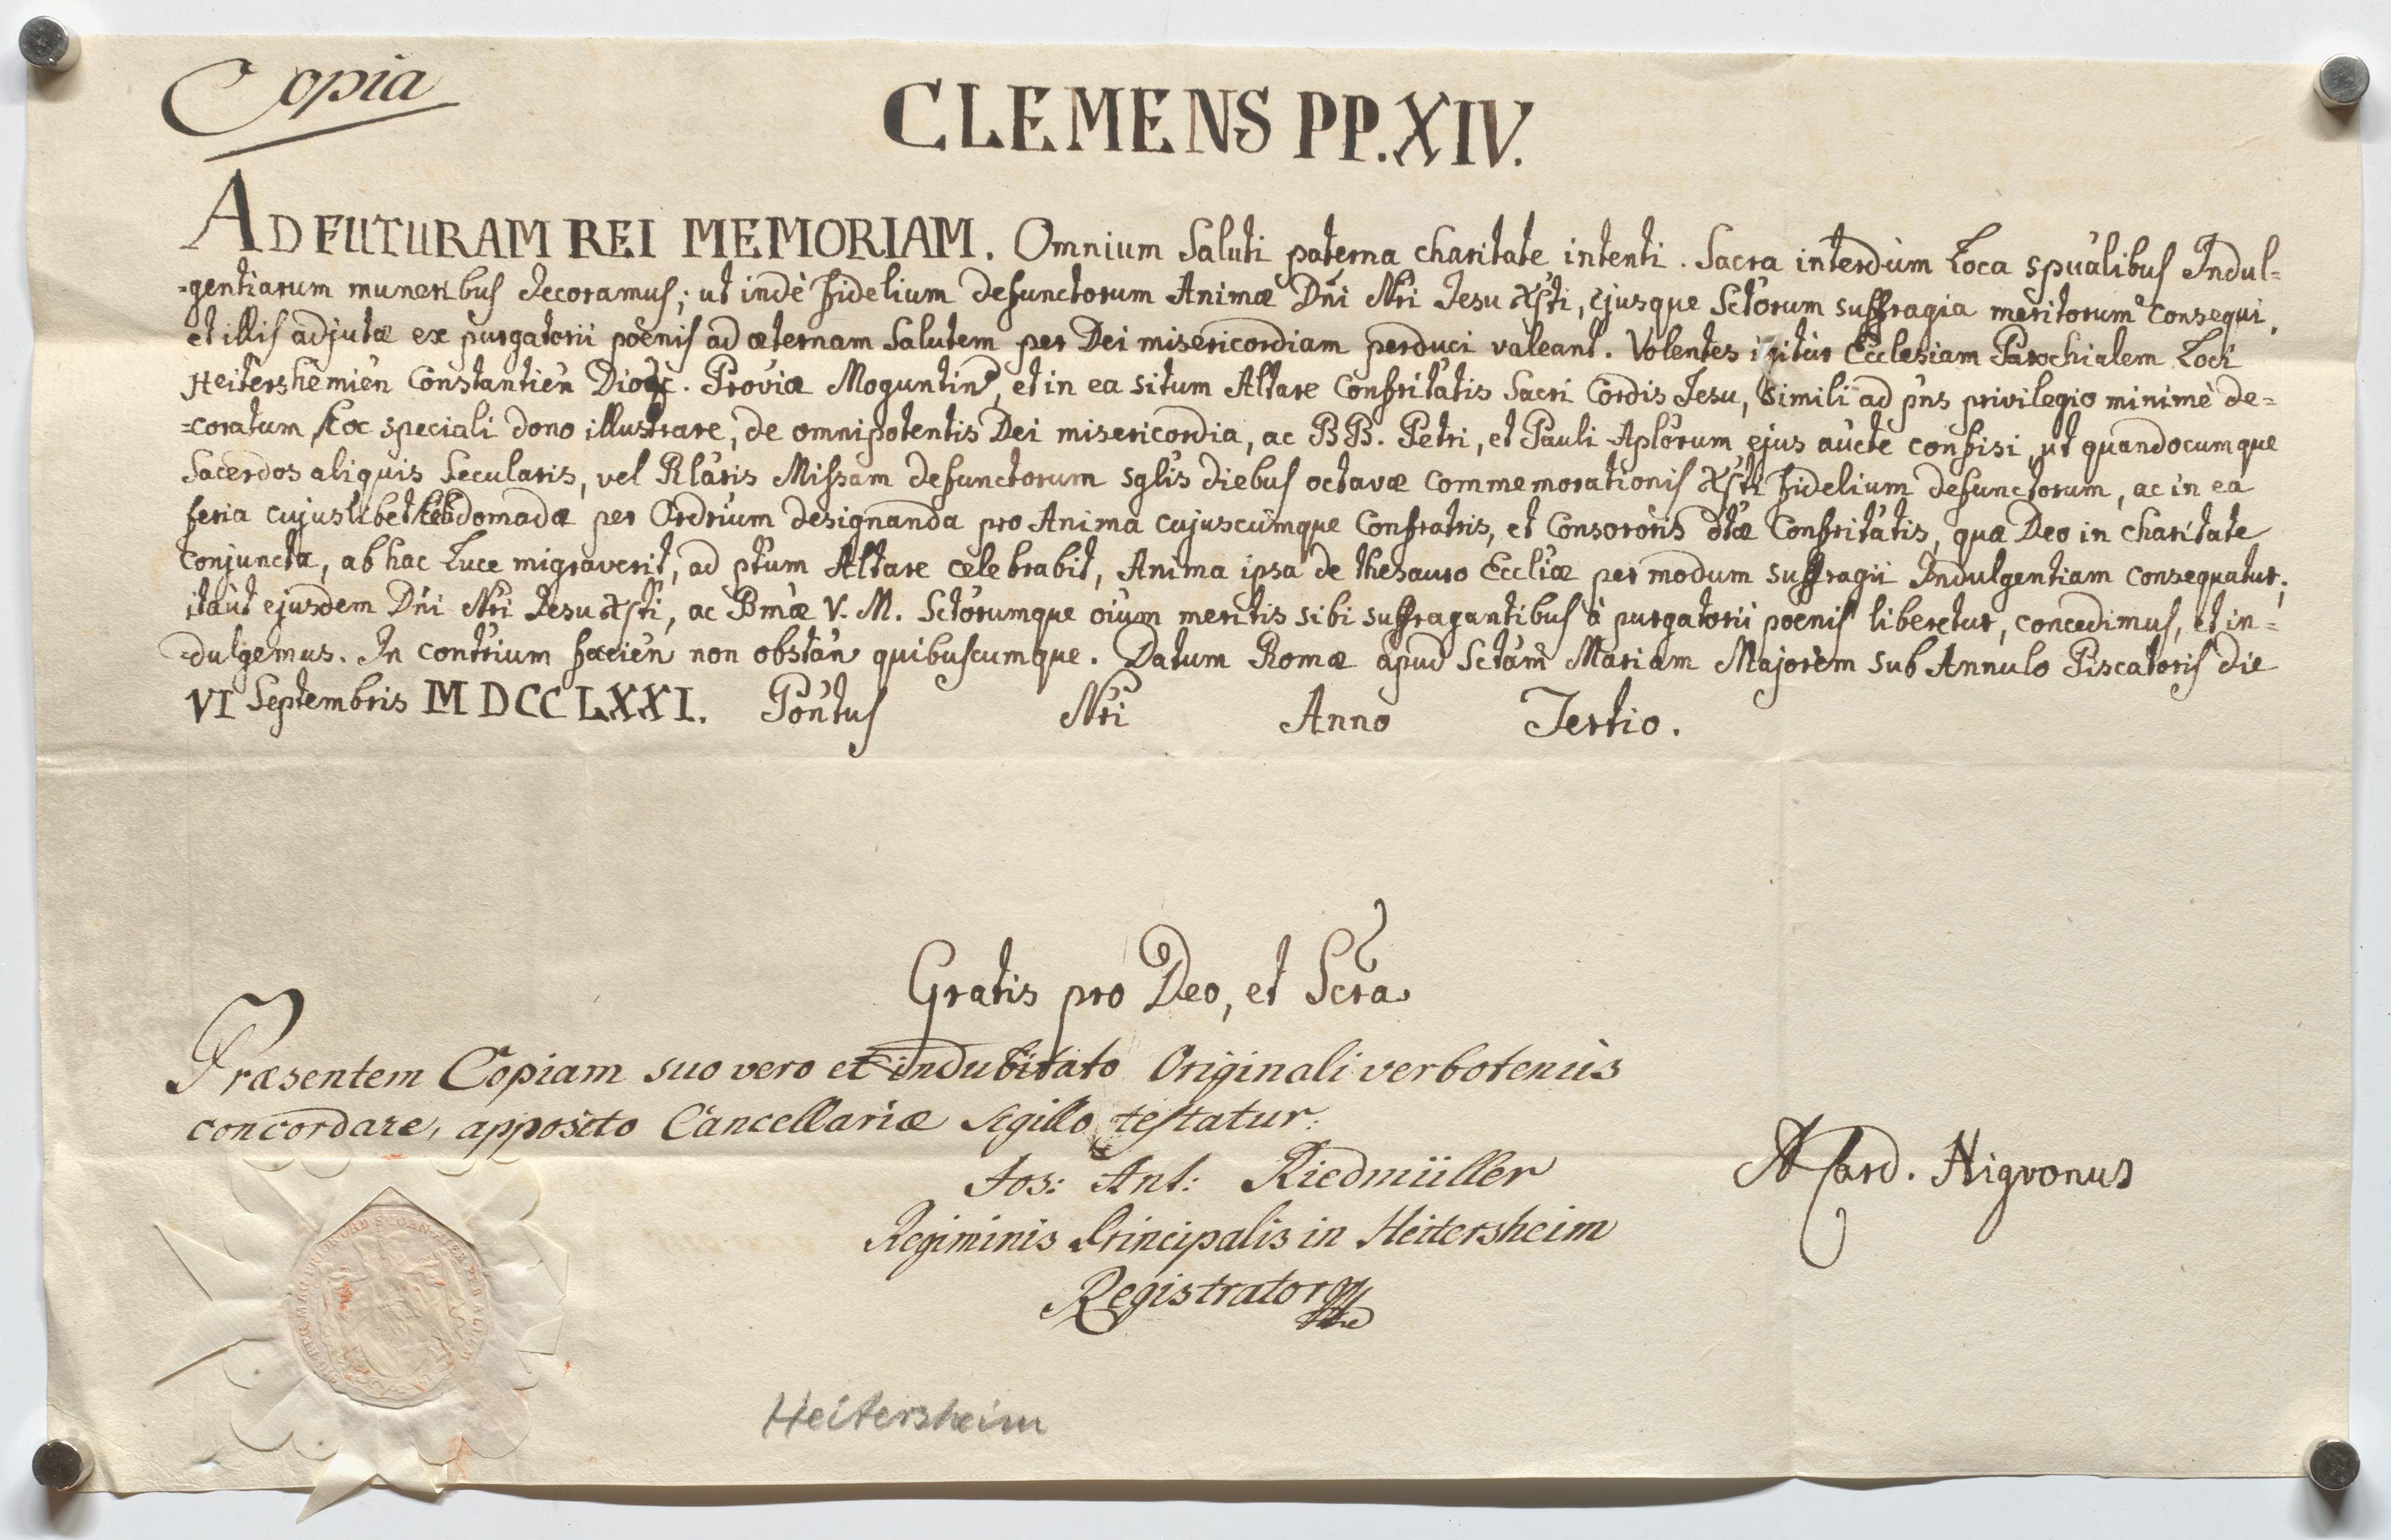 Copia
CLEMENS PP. XIV.
AD FUTURAM REI MEMORIAM. Omnium Saluti paterna charitate intenti. Sacra interdùm Loca spûalibus Indul=
=gentiarum muneribus decoramus; ut indè fidelium defunctorum Animæ Dñi Nri Jesu Xsti, ejusque Sctorum suffragia meritorum consequi,
et illis adjutæ ex purgatorii pœnis ad æternam Salutem per Dei misericordiam perduci valeant. Volentes igitur Ecclesiam Parochialem Loci
Heitershemien Constantien Diœc. Proviæ Moguntin, et in ea situm Altare Confritatis Sacri Cordis Jesu, simili ad pñs privilegio minimè de=
=coratum hoc speciali dono illustrare, de omnipotentis Dei misericordia, ac BB. Petri, et Pauli Aplorum ejus aucte confisi, ut quandocumque
Sacerdos aliquis Secularis, vel Rlaris Missam defunctorum sglis diebus octavæ commemorationis Xsti fidelium defunctorum, ac in ea
feria cujuslibet hebdomadæ per Ordrium designanda pro Anima cujuscumque Confratris, et Consororis dtæ Confritatis, quæ Deo in charitate
conjuncta, ab hac Luce migraverit, ad ptum Altare celebrabit, Anima ipsa de thesauro Eccliæ per modum suffragii Indulgentiam consequatur;
itaut ejusdem Dñi Nri Jesu Xsti, ac Bmæ V. M. Sctorumque oium meritis sibi suffragantibus à purgatorii pœnis liberetur, concedimus, et in=
=dulgemus. In contrium facien non obstan quibuscumque. Datum Romæ apud Sctam Mariam Majorem sub Annulo Piscatoris die
VI Septembris MDCCLXXI. Pontus Nri Anno Tertio.
Gratis pro Deo, et Scra
Præsentem Copiam suo vero et indubitato Originali verbotenùs
concordare, apposito Cancellariæ sigillo testatur.
Jos: Ant: Riedmüller
A Card. Nigronus
Regiminis Principalis in Heitersheim
Registrator
Heitersheim